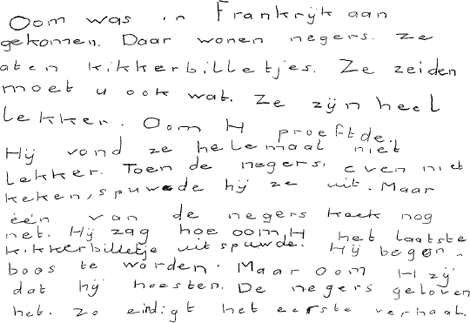 Oom was in Frankrijk aan
gekomen. Daar wonen negers. ze
aten kikkerbilletjes. Ze zeiden
moet u ook wat. Ze zijn heel
lekker. Oom H proefde.
Hij vond ze helemaal niet
Lekker. Toen de negers, even niet
keken, spuwede hij ze uit. Maar
één van de negers keek nog
net. Hij zag hoe oom H het laatste
kikkerbilletje uitspuwde. Hij begon
boos te worden. Maar oom H zij
dat hij hoesten. De negers geloven
het. zo eindigt het eerste verhaal.